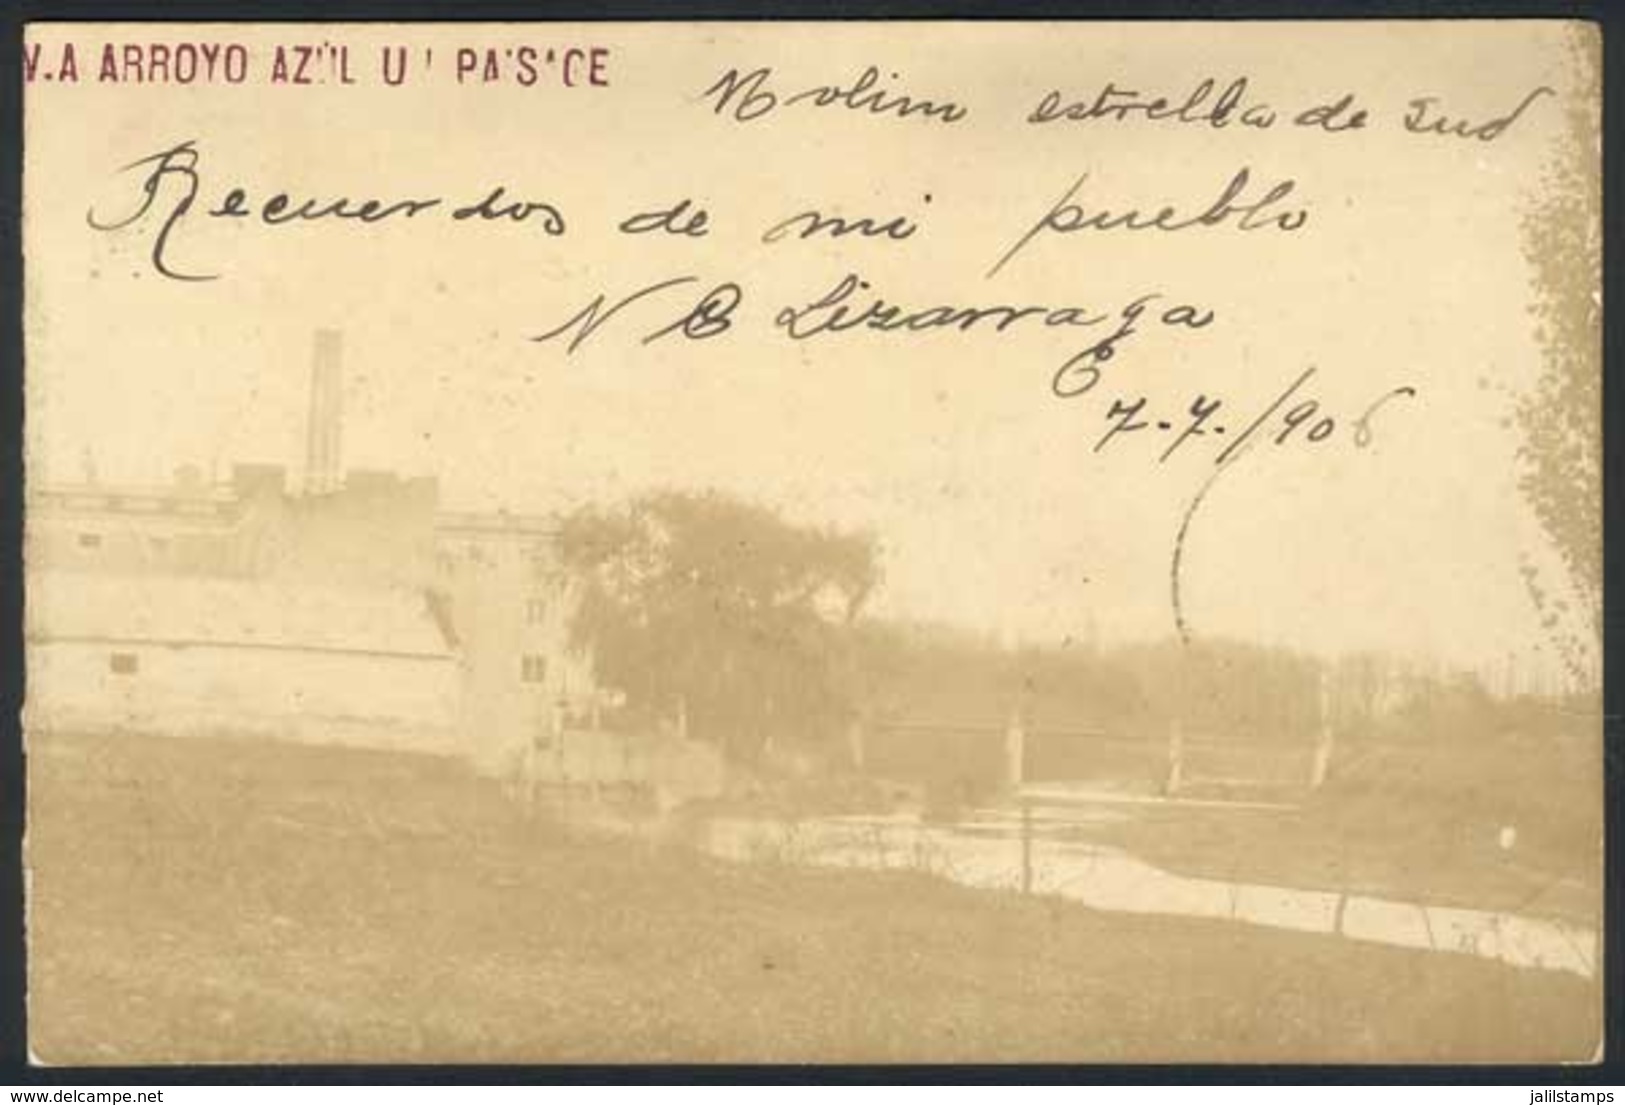 V.A ARROYO AZUL UN PAISAGE
Molino estrella de sud
Recuerdos de mi pueblo
N B Lizarraga
7.-7.-/906
www.delcampe.net
jalilstamps